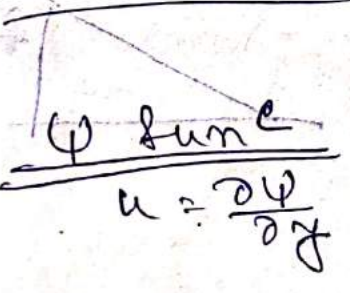 ψ func
u = ∂ψ/∂y